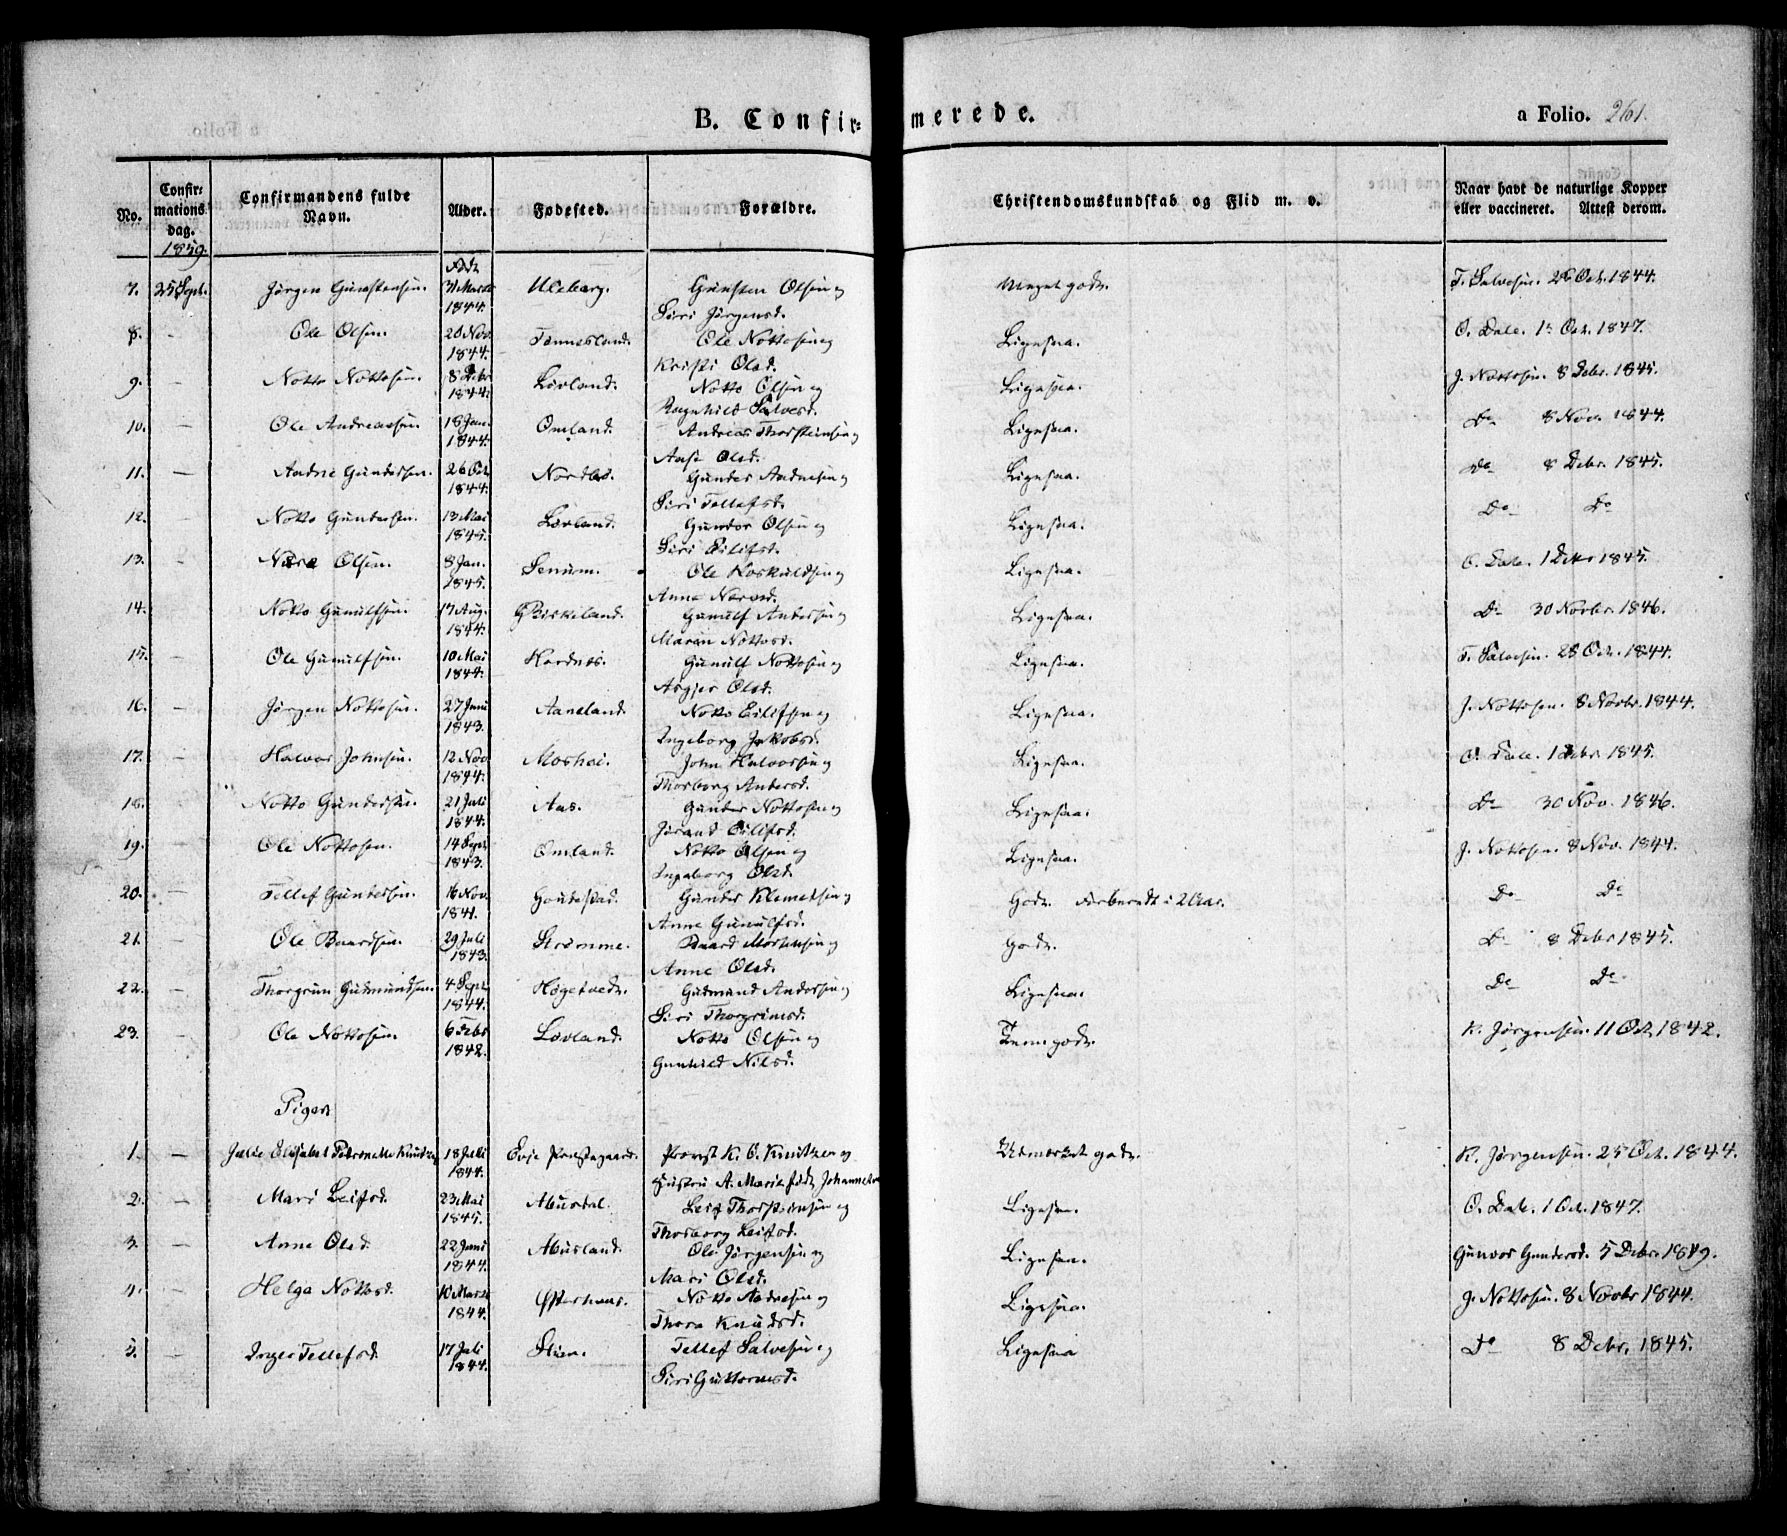 B. Confirmerede.
a Folio. 261.
No. Confirmations dag. Confirmandens fulde Navn. Alder. Fødested. Forældre. Christendomskundskab og Flid m. v. Naar havt de naturlige Kopper eller vaccineret. Attest derom.
1859.
7. 25 Sept. Jørgen Gunstensen. Født 31 Marts 1844. Uleberg. Gunsten Olsen og Siri Jørgensd. Meget godt. T. Salvesen. 26 Oct. 1844.
8. – Ole Olsen. 20 Nov. 1844. Tønnesland. Ole Nottosen og Kristi Olsd. Ligesaa. O. Dale. 1 Oct. 1847.
9. – Notto Nottosen. 8 Debr 1844. Lövland. Notto Olsen og Ragnhild Salvesd. Ligesaa. J. Nottosen 8 Debr. 1845.
10. – Ole Andreassen. 18 Jan. 1844. Omland. Andreas Thorsteinsen og Aase Olsd. Ligesaa. Do 8 Nov. 1844.
11. – Aadne Gundersen. 26 Oct 1844. Nordbø. Gunder Aadnesen og Siri Tellefsd. Ligesaa. Do 8 Debr. 1845.
12. – Notto Gundersen. 13 Mai 1845. Lövland. Gunder Olsen og Siri Eilifsd. Ligesaa. Do Do
13. – Olsen. 8 Jan. 1845. Senum. Ole Hoskuldsen og Anne Ligesaa. O. Dale. 1 Debr 1845.
14. – Notto Gunulfsen. 17 Aug. 1844. Birkeland. Gunulf Andersen og Maren Nottosd. Ligesaa. Do 30 Novbr. 1846.
15. – Ole Gunulfsen. 10 Mai 1844. Hordnes. Gunulf Nottosen og Asgjer Olsd. Ligesaa. T. Salvesen. 28 Oct. 1844.
16. – Jørgen Nottosen. 27 Juni 1843. Aaneland. Notto Eilifsen og Ingeborg Jakobsd. Ligesaa. J. Nottosen. 8 Novbr. 1844.
17. – Halvor Johnsen. 12 Nov 1844. Moshei. John Halvorsen og Thorborg Andersd. Ligesaa. O. Dale. 1 Debr. 1845.
18. – Notto Gundersen. 21 Juli 1844. Aas. Gunder Nottosen og Jørand Eilifsd. Ligesaa. Do 30 Nov. 1846.
19. – Ole Nottosen. 14 Sept 1843. Omland. Notto Olsen og Ingeborg Olsd. Ligesaa. J. Nottosen. 8 Nov. 1844.
20. – Tellef Gundersen. 16 Nov. 1841. Gautestad. Gunder Klemetsen og Anne Gunulfsd. Godt. Forberedt i 2 Aar. Do Do
21. – Ole Baardsen. 29 Juli 1843. Strømme. Baard Mortensen og Anne Olsd. Godt. Do 8 Debr 1845.
22. – Thorgrim Gudmundsen. 4 Sept 1844. Høgetvedt. Gudmund Andersen og Siri Thorgrimsd. Ligesaa. Do Do
23. Ole Nottosen. 6 Febr 1842. Lövland. Notto Olsen og Gunhild Nilsd. Temgodt. K. Jørgensen. 11 Oct 1842.
Piger
1. – Julie Elisabet Petronelle Knudtzen 18 Juli 1844. Evje Præstegaard. Provst K. O. Knutzen og Hustru A. Marie født Johannesen Udmerket godt. K. Jørgensen. 25 Oct. 1844.
2. – Mari Leifsd. 23 Mai 1845. Abusdal. Leif Thorsteinsen og Thorborg Leifsd. Ligesaa. O. Dale. 1 Oct. 1847.
3. – Anne Olsd. 22 Juni 1844. Abusland. Ole Jørgensen og Mari Olsd. Ligesaa. Gunvor Gundersd. 5 Debr. 1849.
4. – Helga Nottosd. 10 Marts 1844. Østerhus. Notto Aadnesen og Thora Knudsd. Ligesaa. J. Nottosen. 8 Novbr 1844.
5. – Inger Tellefsd. 17 Juli 1844. Stien. Tellef Salvesen og Siri Guttormsd. Ligesaa Do 8 Debr. 1845.